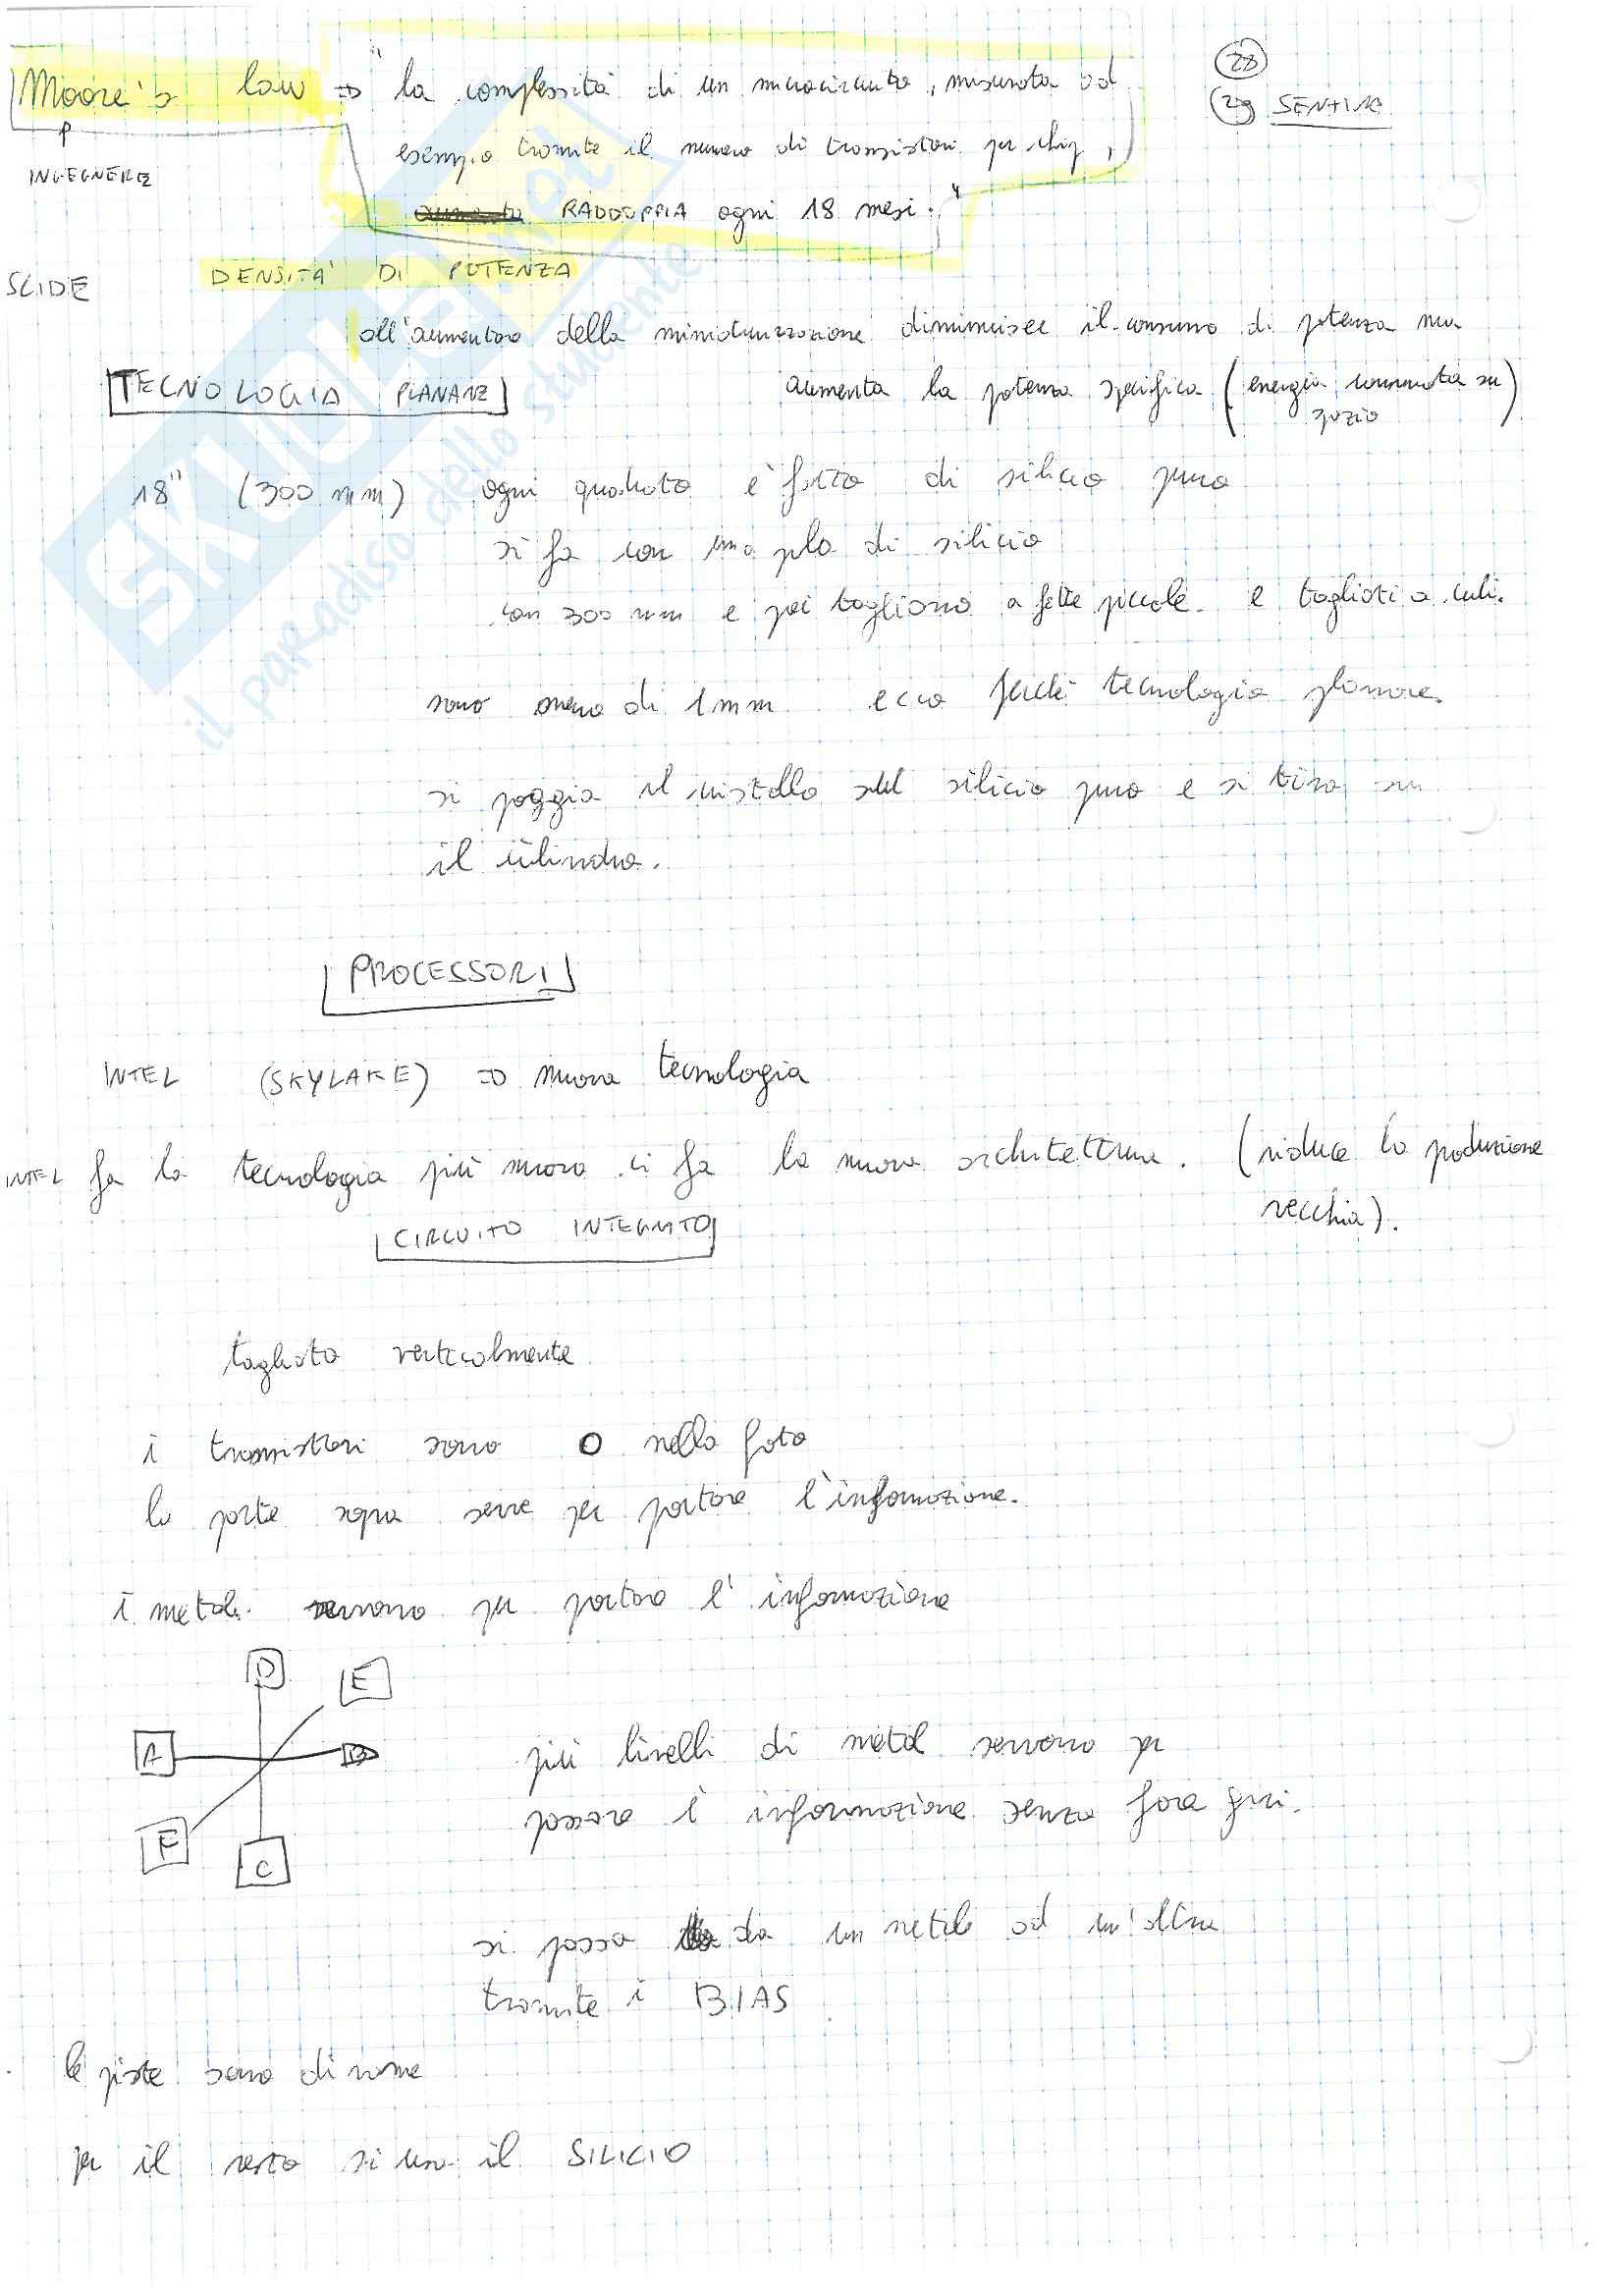 Moore's law => "la complessità di un microcircuito, misurata ad
esempio tramite il numero di transistori per chip,
RADDOPPIA ogni 18 mesi."
INGEGNERE
28
29 SENTIRE
SLIDE
DENSITA' DI POTENZA
all'aumentare della miniaturizzazione diminuisce il consumo di potenza ma
aumenta la potenza specifica (energia consumata su
spazio)
TECNOLOGIA PLANARE
18" (300 mm) ogni quadrato è fatto di silicio puro
si fa con una di silicio
con 300 mm e poi tagliano a fette piccole e tagliati a cubi.
sono meno di 1mm ecco perché tecnologia planare.
si poggia il cristallo sul silicio puro e si tira su
il cilindro.
PROCESSORI
INTEL (SKYLAKE) => nuova tecnologia
INTEL fa la tecnologia più nuova ci fa la nuova architettura. (riduce la produzione
vecchia).
CIRCUITO INTEGRATO
tagliato verticalmente
i transistori sono O nella foto
la parte sopra serve per portare l'informazione.
i metal servono per portare l'informazione
D
E
A
B
F
C
più livelli di metal servono per
passare l'informazione senza fare giri.
si passa da un metal ad un'altro
tramite i BIAS
le piste sono di rame
per il resto si usa il SILICIO
SKUOLA.net
il paradiso dello studente